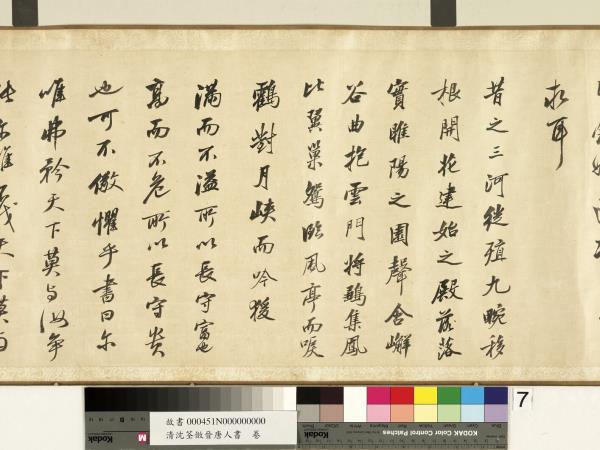 求耳
昔之三河徙殖九畹移
根開花建始之殿落
實睢陽之園聲含嶰
谷曲抱雲門將鶵集鳳
比翼巢鴛臨風亭而唳
鶴對月峽而吟猨
滿而不溢所以長守富也
高而不危所以長守貴
也可不儆懼乎書曰尔
唯弗矜天下莫与汝争
天下莫与
7
故書 000451N000000000
清沈荃倣晉唐人書 卷
Kodak
KODAK Color Control Patches